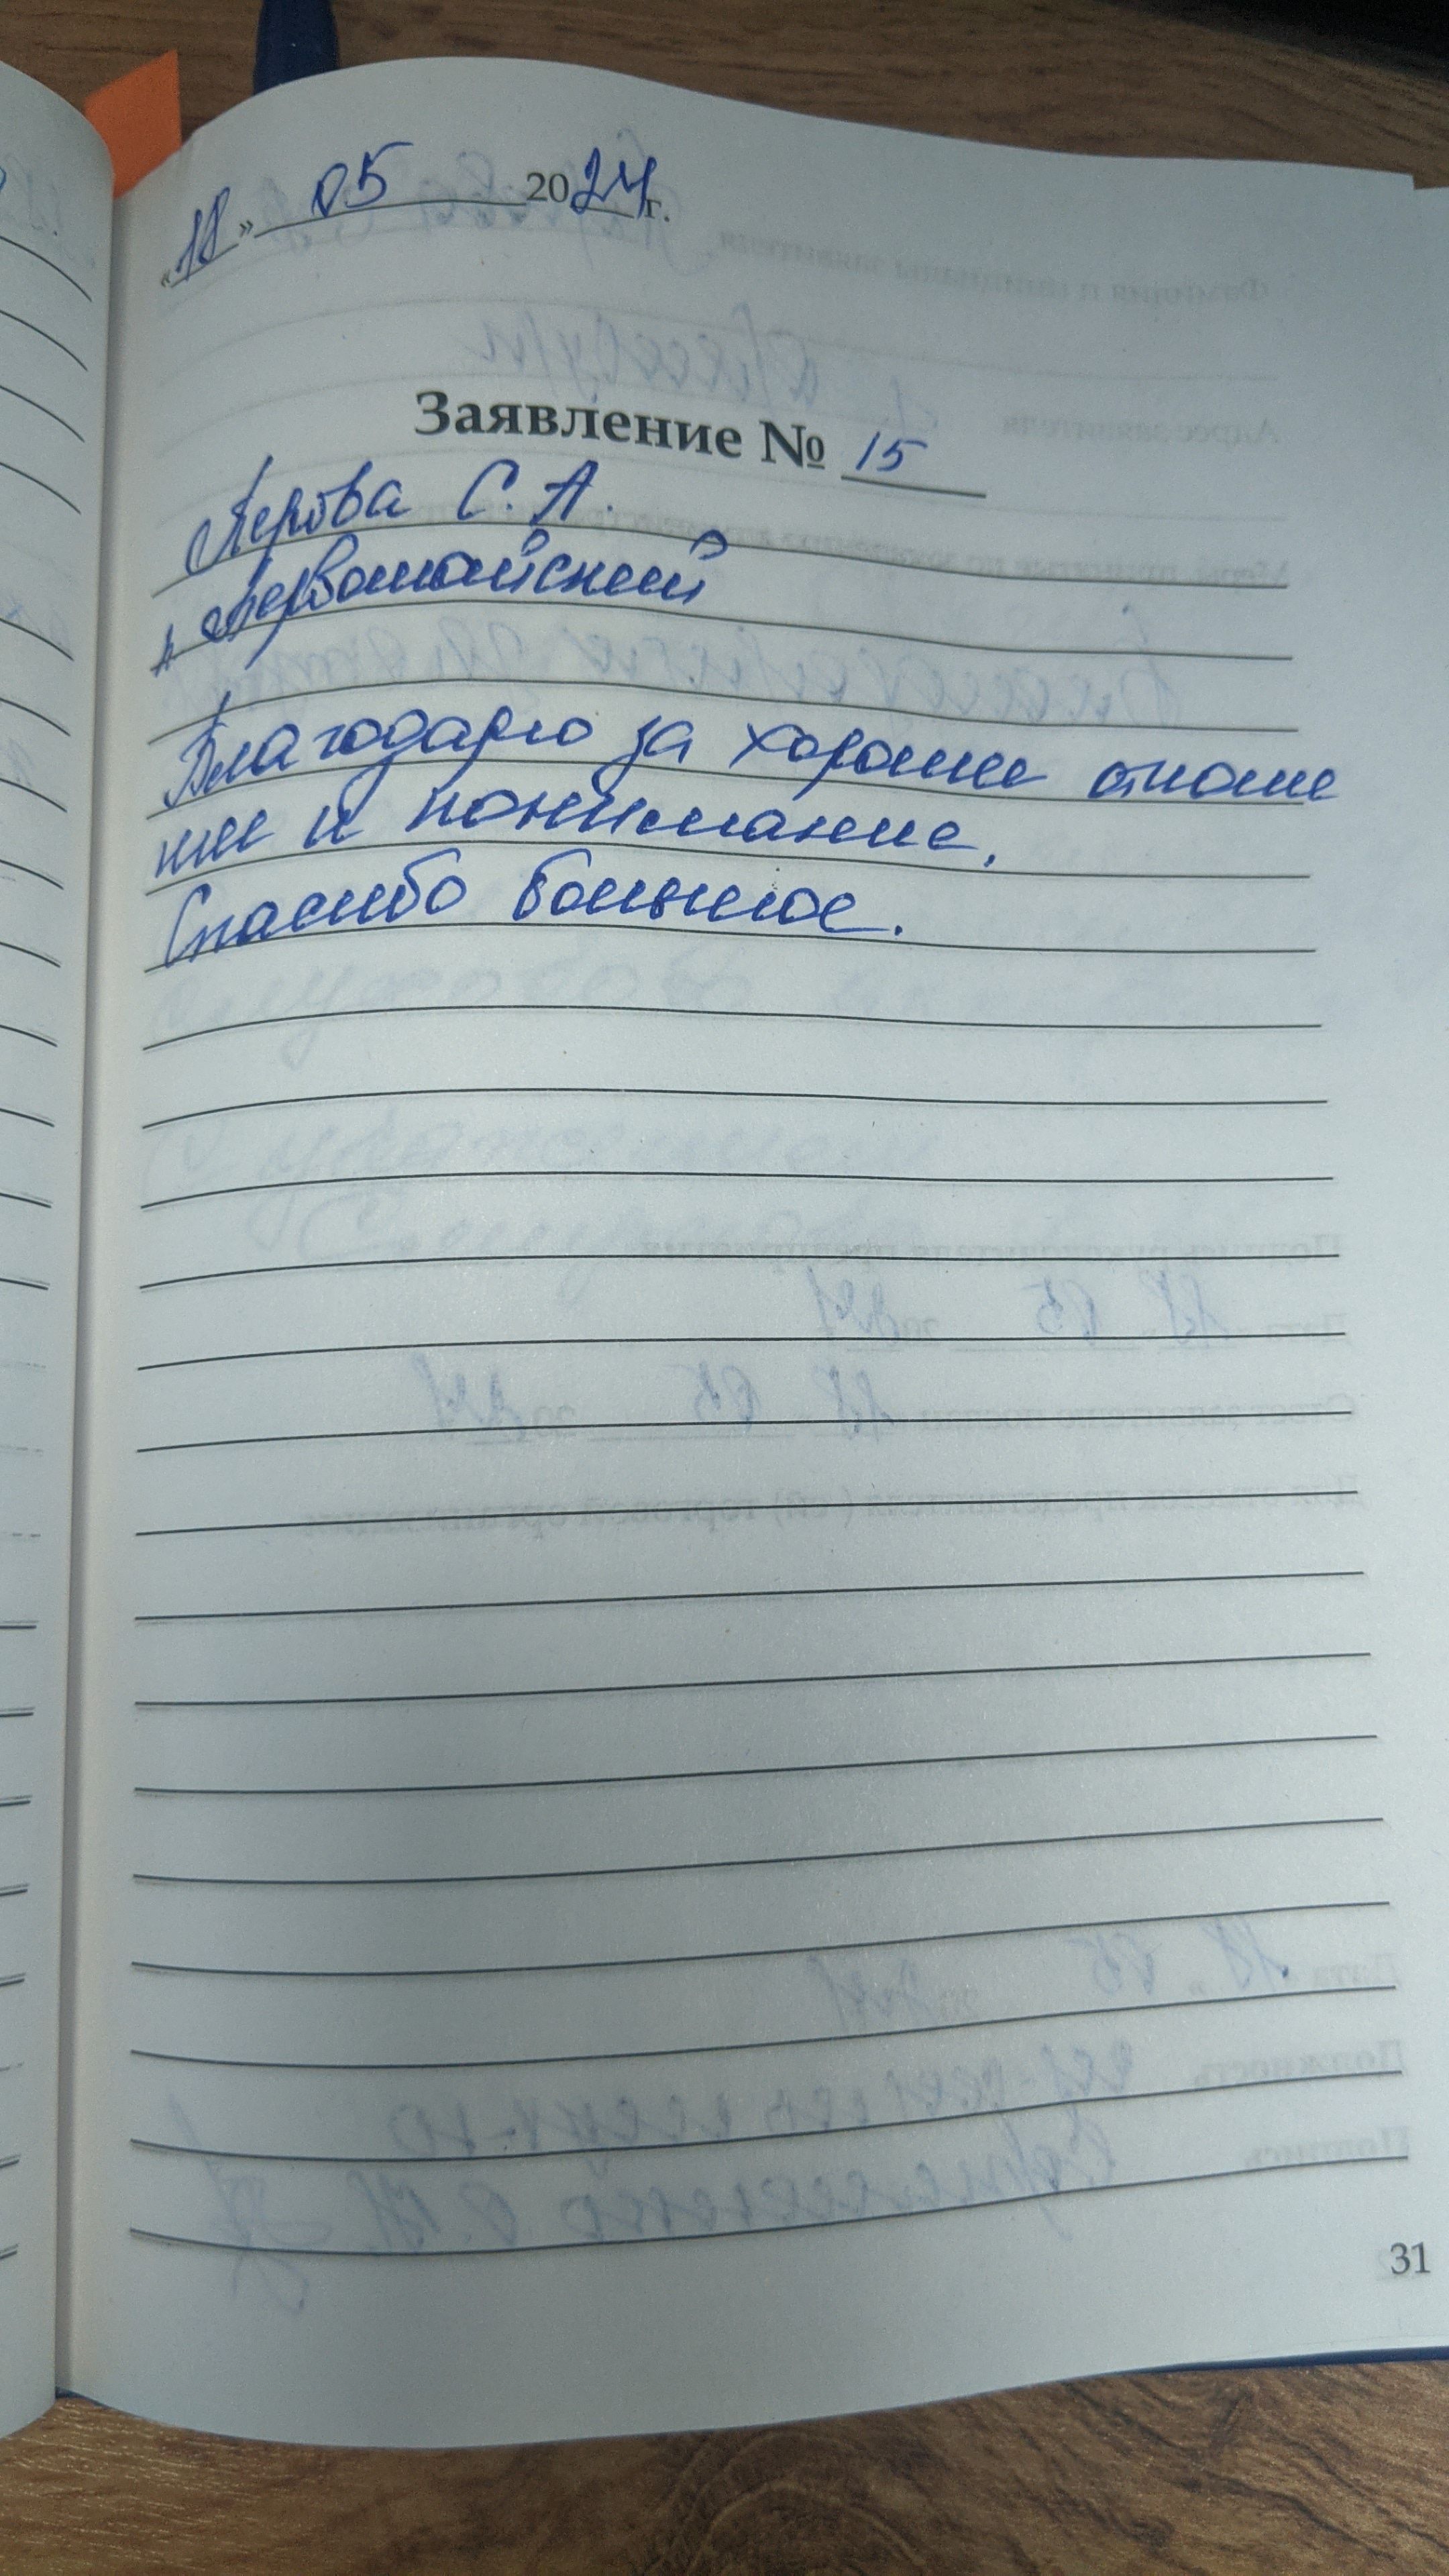 «18» 05 2024 г.
Заявление № 15
Перова С. А.
п. Первомайский
Благодарю за хорошее отноше
ние и понимание.
Спасибо большое.
31